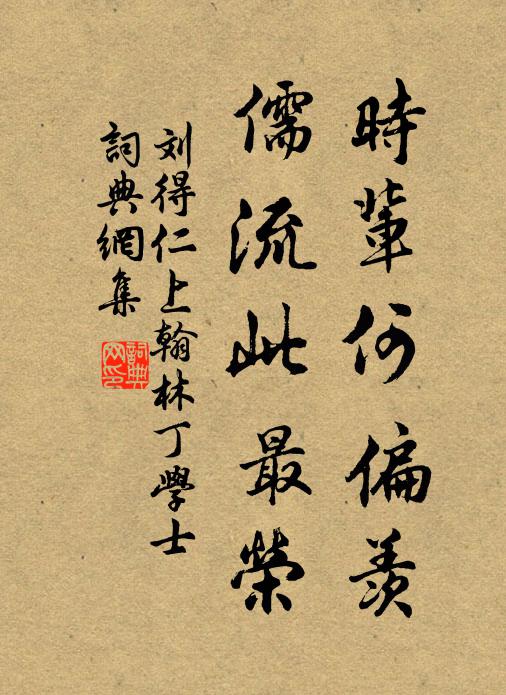 時輩何偏羨
儒流此最榮
刘得仁上翰林丁學士
詞典網集
詞典网印